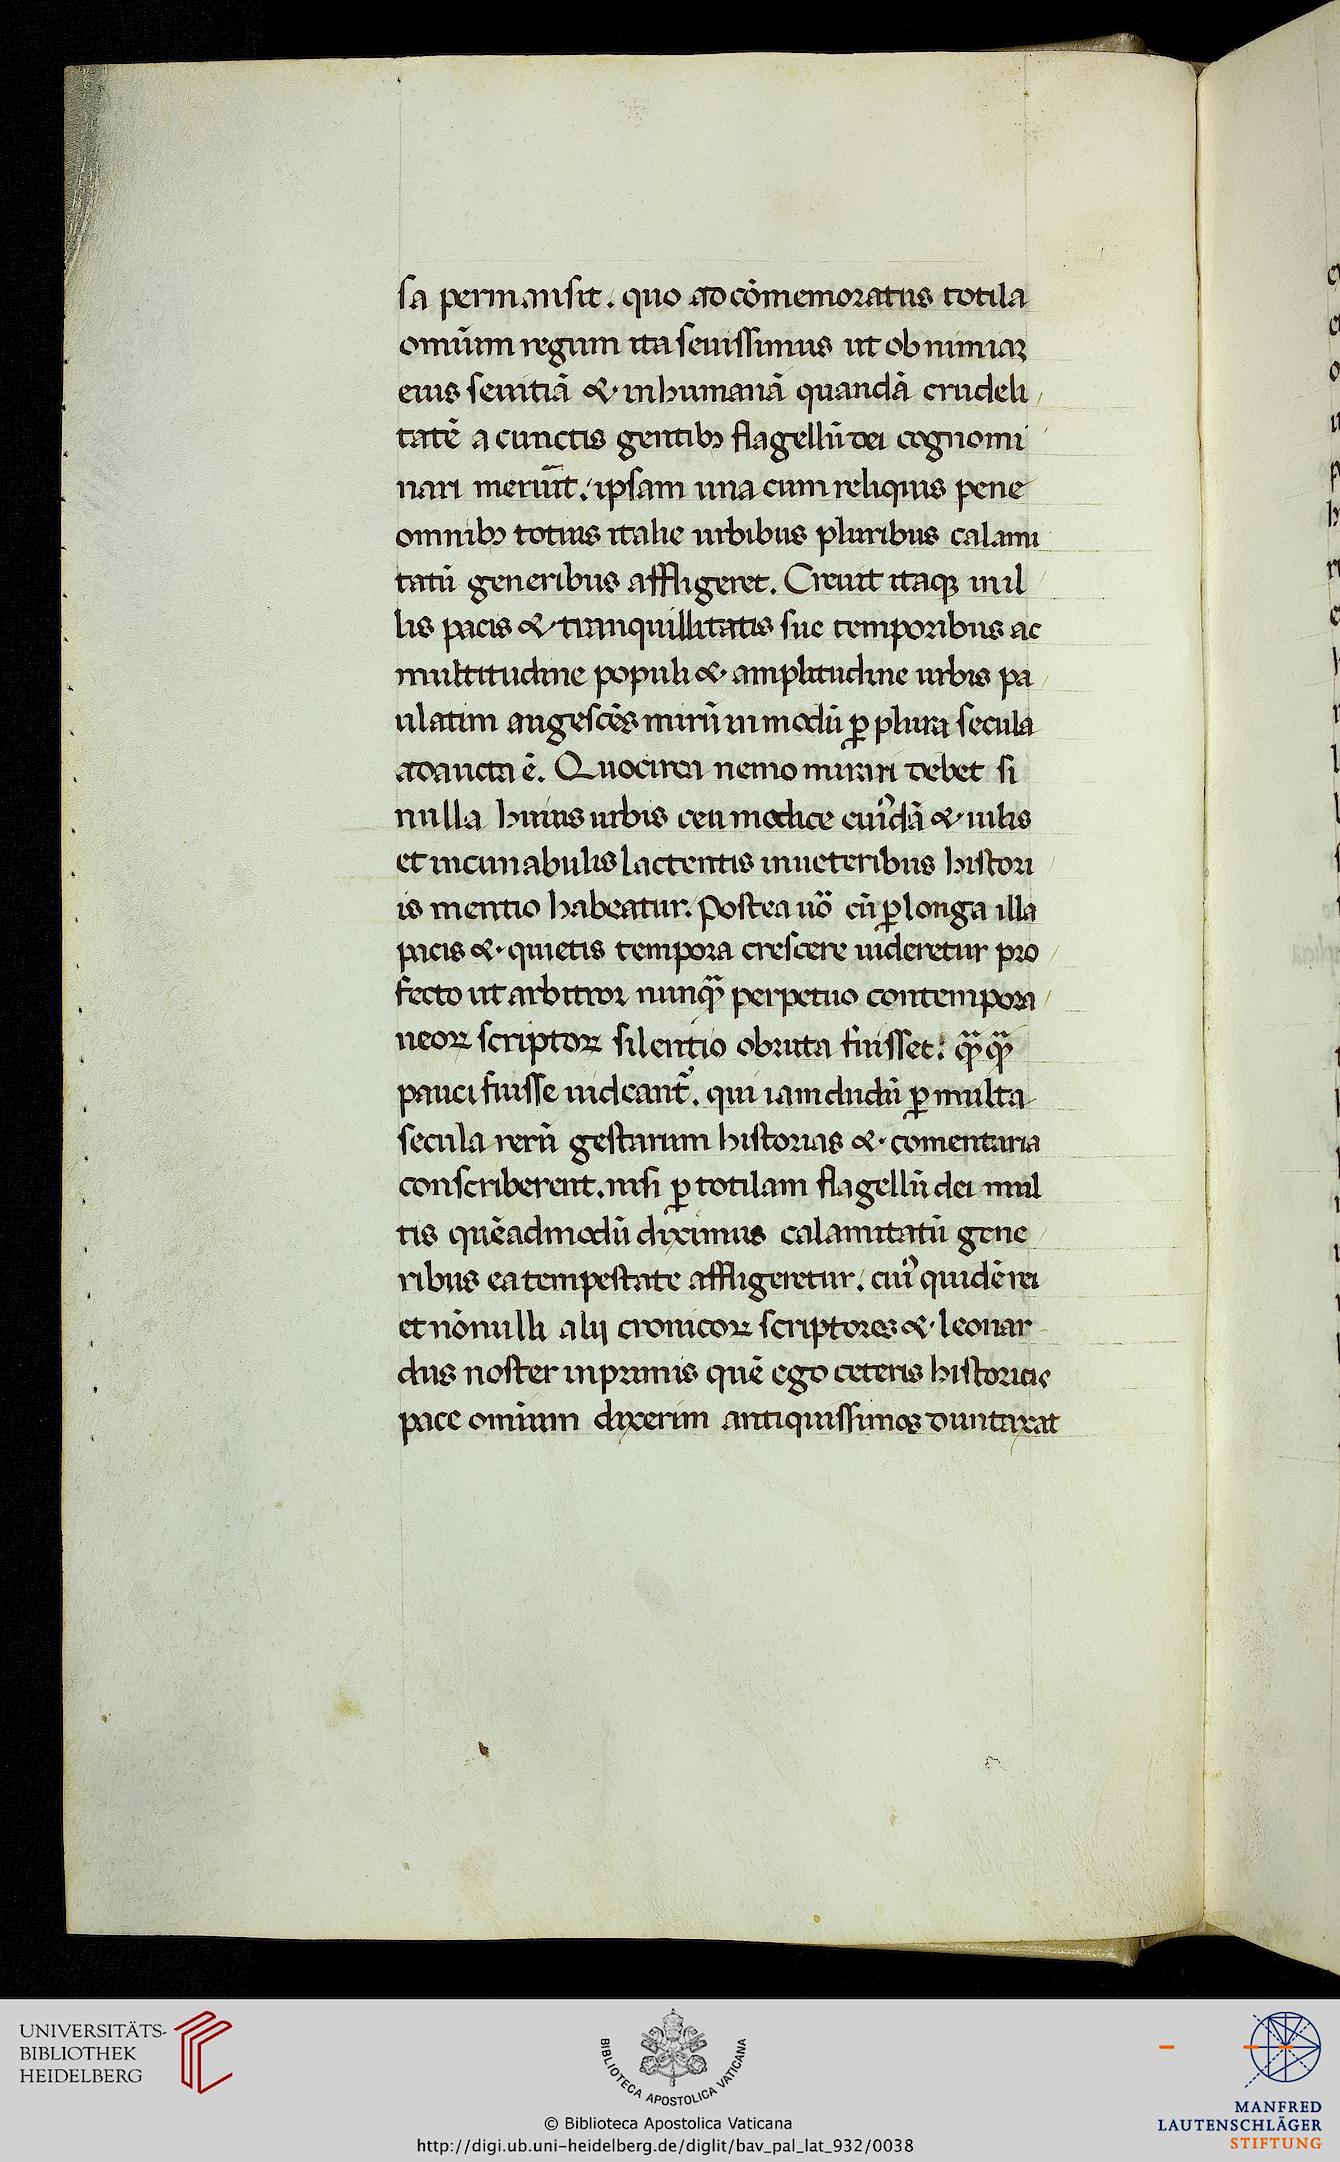 sa permansit. quo ad cōmemoratus totila
omiūm regum ita seuissimus ut ob nimiaꝫ
eius seuitiā & inhumanā quandā crudeli
tatē a cunctis gentibꝫ flagellū dei cognomi
nari meruīt. ipsam una cum reliquis pene
omnibꝫ totius italie urbibus pluribus calami
tatū generibus affligeret. Creuit itaqꝫ in il
lis pacis & tranquillitatis sue temporibus ac
multitudine populi & amplitudine urbis pa
ulatim augescēs mirū in modū ꝑ plura secula
adaucta ē. Quocirca nemo mirari debet si
nulla huius urbis ceu modice & uilis
et incunabulis lactentis in ueteribus histori
is mentio habeatur. Postea uō cū ꝑ longa illa
pacis & quietis tempora crescere uideretur pro
fecto ut arbitror nunqꝫ perpetuo contempora
neoꝝ scriptoꝝ silentio obruta fuisset: qꝫqꝫ
pauci fuisse uideant᷑. qui iam dudū ꝑ multa
secula rerū gestarum historias & comentaria
conscriberent. nisi ꝑ totilam flagellū dei mul
tis quēadmodū diximus calamitatū gene
ribus ea tempestate affligeretur. cuiꝰ quidē rei
et nōnulli alij cronicoꝝ scriptores & leonar
dus noster inprimis quē ego ceteris historicis
pace omiūm dixerim antiquissimos duntaxat
UNIVERSITÄTS-
BIBLIOTHEK
HEIDELBERG
BIBLIOTECA APOSTOLICA VATICANA
© Biblioteca Apostolica Vaticana
http://digi.ub.uni-heidelberg.de/diglit/bav_pal_lat_932/0038
MANFRED
LAUTENSCHLÄGER
STIFTUNG